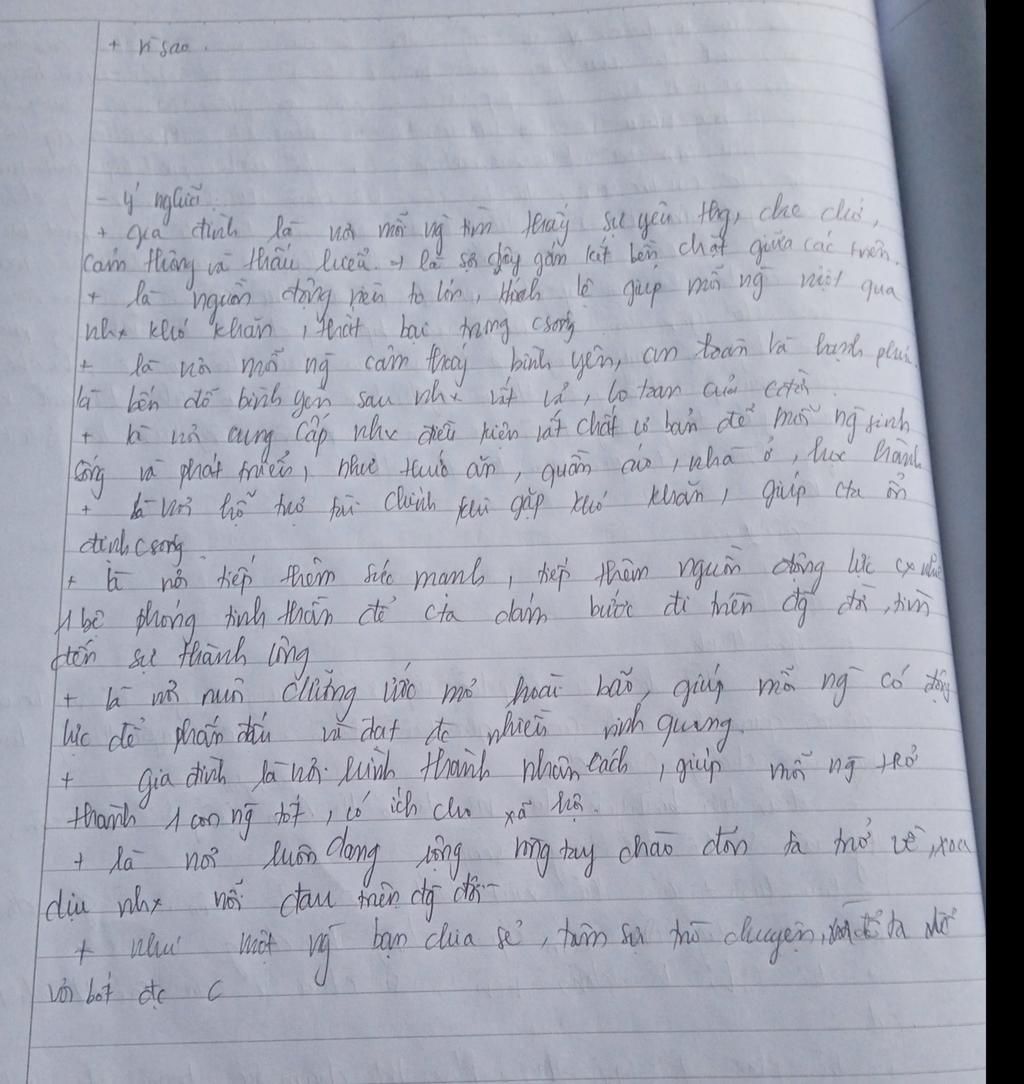 + vì sao.
- ý nghĩa
+ gia đình là nơi mỗi ng tìm thấy sự yêu thg, che chở,
cảm thông và thấu hiểu. → là sợi dây gắn kết bền chặt giữa các
+ là nguồn động to lớn, giúp mỗi ng vượt qua
nhx khó khăn, thất bại trong csong
+ là nơi mỗi ng cảm thấy bình yên, an toàn và hạnh phúc.
là bến đỗ bình yên sau nhx vất vả, lo toan của
+ là nơi cung cấp nhx điều kiện vật chất cơ bản để mỗi ng sinh
sống và phát triển, như thức ăn, quần áo, nhà ở, học hành
+ là nơi hỗ trợ tài chính khi gặp khó khăn, giúp cta ổn
định csong.
+ là nơi tiếp thêm sức mạnh, tiếp thêm nguồn động lực cx như
1 bệ phóng tinh thần để cta dám bước đi trên đg đời, tìm
đến sự thành công
+ là nơi nuôi dưỡng ước mơ hoài bão, giúp mỗi ng có động
lực để phấn đấu và đạt đc nhiều vinh quang.
+ gia đình là nơi hình thành nhân cách, giúp mỗi ng trở
thành 1 con ng tốt, có ích cho xã hội.
+ là nơi luôn dang rộng vòng tay chào đón ta trở về, xoa
dịu nhx nỗi đau trên đg đời
+ như một ng bạn chia sẻ, tâm sự trò chuyện, để ta
vơi bớt đc c